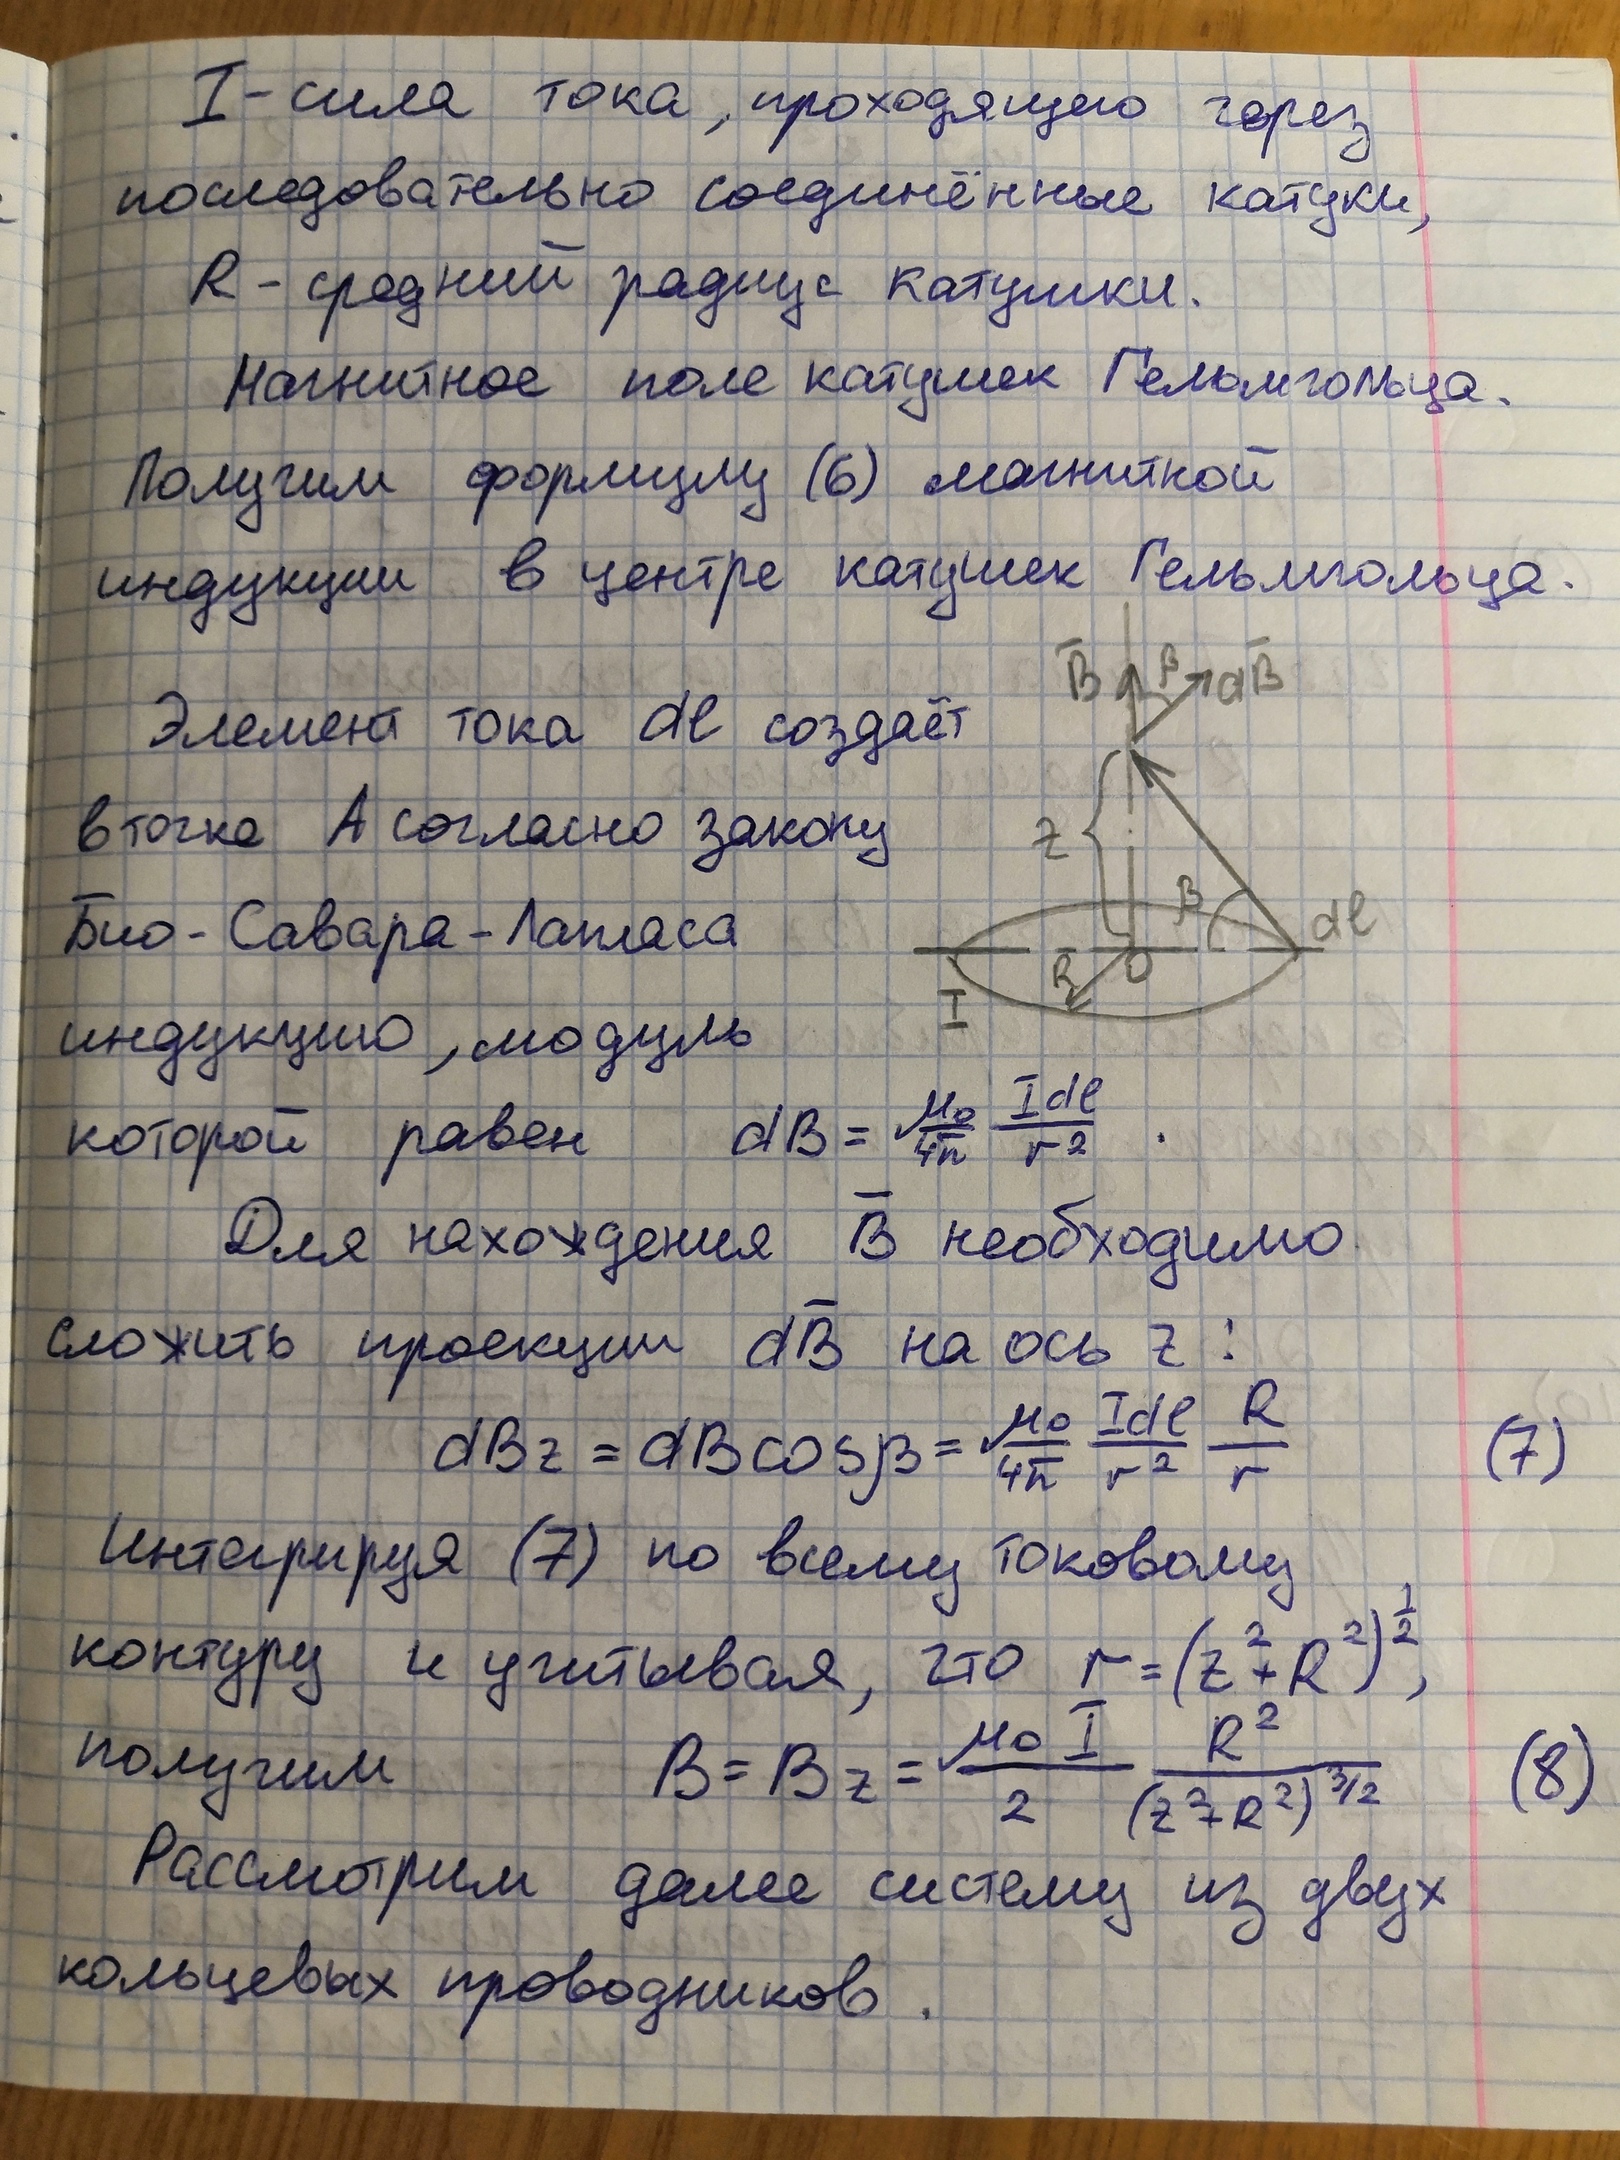 I - сила тока, проходящего через
последовательно соединённые катуки,
R - средний радиус катушки.
Магнитное поле катушек Гельмгольца.
Получим формулу (6) магнитной
индукции в центре катушек Гельмгольца.
B̅ β dB̅
Элемент тока dl создаёт
в точке A согласно закону
z
β
dl
Био-Савара-Лапласа
R O
I
индукцию, модуль
которой равен dB = μ₀/4π Idl/r² .
Для нахождения B̅ необходимо
сложить проекции dB̅ на ось z:
dBz = dB cosβ = μ₀/4π Idl/r² R/r (7)
Интегрируя (7) по всему токовому
контуру и учитывая, что r = (z²+R²)^1/2,
получим B = Bz = μ₀I/2 R²/(z²+R²)^3/2 (8)
Рассмотрим далее систему из двух
кольцевых проводников.